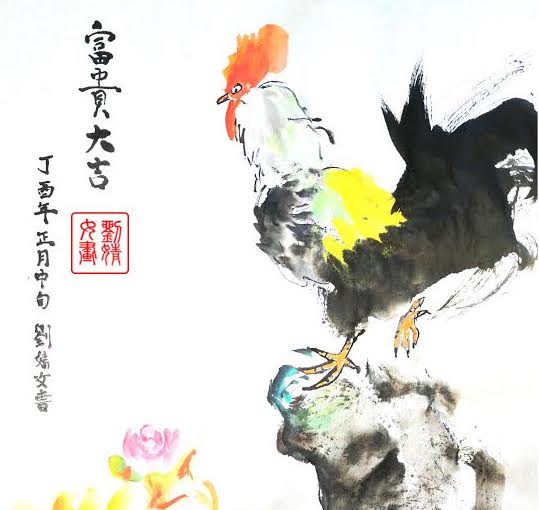 富貴大吉
丁酉年 正月中旬 劉婧文書
劉婧
畫